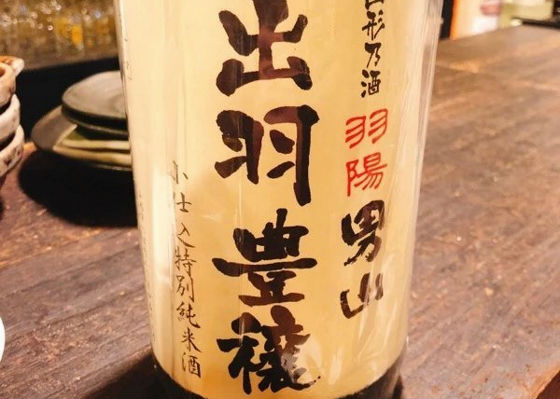 山形乃酒
羽陽男山
出羽豊穣
小仕込特別純米酒